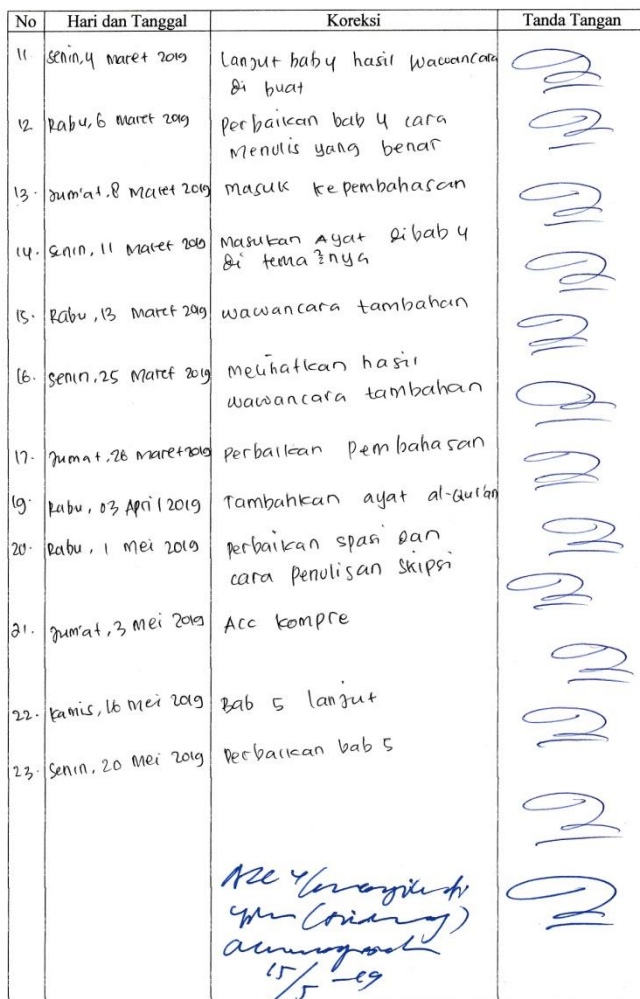 No Hari dan Tanggal Koreksi Tanda Tangan
11 Senin, 4 Maret 2019 Lanjut bab 4 hasil wawancara
di buat
12 Rabu, 6 Maret 2019 Perbaikan bab 4 cara
Menulis yang benar
13. Jum'at, 8 Maret 2019 Masuk ke pembahasan
14. Senin, 11 Maret 2019 Masukan Ayat di bab 4
di tema²nya
15. Rabu, 13 Maret 2019 wawancara tambahan
16. Senin, 25 Maret 2019 Melihatkan hasil
wawancara tambahan
17. Jumat, 26 Maret 2019 Perbaikan Pembahasan
19. Rabu, 03 April 2019 Tambahkan ayat al-Qur'an
20. Rabu, 1 Mei 2019 Perbaikan spasi dan
cara Penulisan Skipsi
21. Jum'at, 3 Mei 2019 Acc Kompre
22. Kamis, 16 Mei 2019 Bab 5 lanjut
23. Senin, 20 Mei 2019 Perbaikan bab 5
15/5 -19